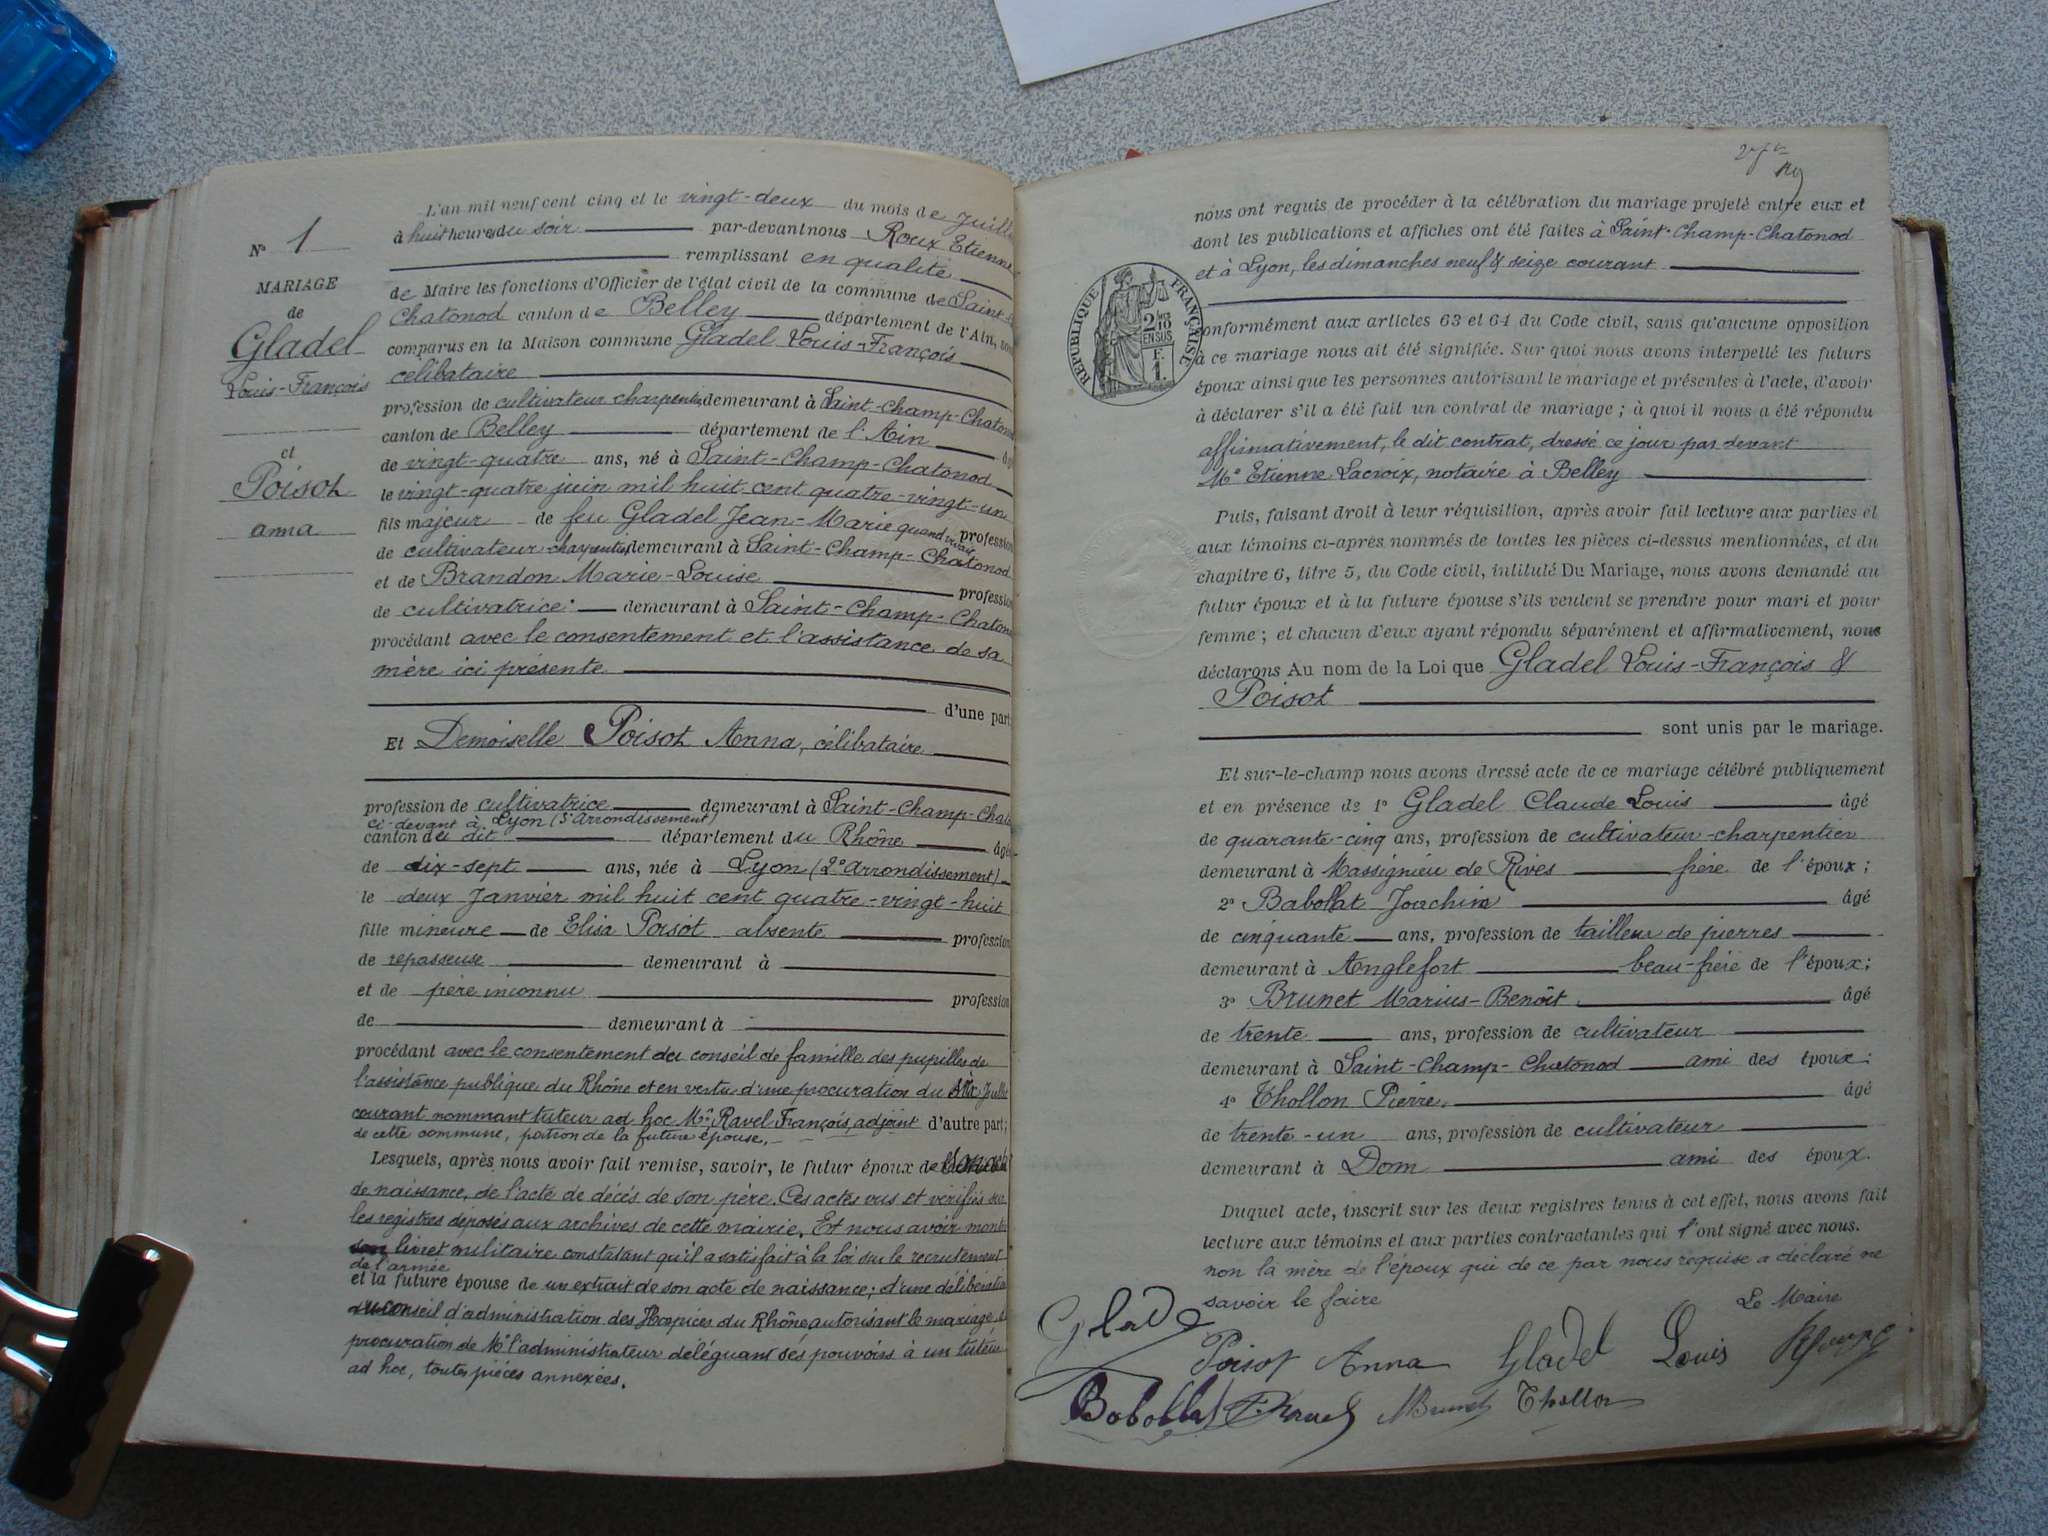 N° 1
MARIAGE
de
Gladel
Louis-François
et
Poisot
anna
L'an mil neuf cent cinq et le vingt-deux du mois de Juill
à huit heures du soir par-devant nous Roux Etienne
remplissant en qualité
de Maire les fonctions d'Officier de l'état civil de la commune de Saint-
Chatonod canton de Belley département de l'Ain, 
comparus en la Maison commune Gladel Louis-François
célibataire
profession de cultivateur charpentier demeurant à Saint-Champ-Chatonod
canton de Belley département de l'Ain
de vingt-quatre ans, né à Saint-Champ-Chatonod
le vingt-quatre juin mil huit cent quatre-vingt-un
fils majeur de feu Gladel Jean-Marie quand vivait profession
de cultivateur charpentier demeurant à Saint-Champ-Chatonod
et de Brandon Marie-Louise profession
de cultivatrice demeurant à Saint-Champ-Chaton
procédant avec le consentement et l'assistance de sa
mère ici présente
d'une part;
Et Demoiselle Poisot Anna, célibataire
profession de cultivatrice demeurant à Saint-Champ-Chat
ci-devant à Lyon (5e Arrondissement)
canton du dit département du Rhône âgée
de dix-sept ans, née à Lyon (2e Arrondissement)
le deux Janvier mil huit cent quatre-vingt-huit
fille mineure de Elisa Poisot absente profession
de repasseuse demeurant à
et de père inconnu profession
de demeurant à
procédant avec le consentement du conseil de famille des pupilles de
l'assistance publique du Rhône et en vertu d'une procuration du six Juillet
courant nommant tuteur ad hoc Mr Ravel François, adjoint d'autre part;
de cette commune, patron de la future épouse,
Lesquels, après nous avoir fait remise, savoir, le futur époux de
de naissance, de l'acte de décès de son père. Ces actes vus et vérifiés sur
les registres déposés aux archives de cette mairie. Et nous avoir montré
son livret militaire constatant qu'il a satisfait à la loi sur le recrutement
de l'armée
et la future épouse de un extrait de son acte de naissance; d'une délibération
du conseil d'administration des Hospices du Rhône autorisant le mariage, 
procuration de Mr l'administrateur déléguant ses pouvoirs à un tuteur
ad hoc, toutes pièces annexées.
nous ont requis de procéder à la célébration du mariage projeté entre eux et
dont les publications et affiches ont été faites à Saint-Champ-Chatonod
et à Lyon, les dimanches neuf & seize courant
RÉPUBLIQUE FRANÇAISE
2 DES 10
EN SUS
F.
1.
conformément aux articles 63 et 64 du Code civil, sans qu'aucune opposition
à ce mariage nous ait été signifiée. Sur quoi nous avons interpellé les futurs
époux ainsi que les personnes autorisant le mariage et présentes à l'acte, d'avoir
à déclarer s'il a été fait un contrat de mariage; à quoi il nous a été répondu
affirmativement, le dit contrat, dressé ce jour par devant
Me Etienne Lacroix, notaire à Belley
Puis, faisant droit à leur réquisition, après avoir fait lecture aux parties et
aux témoins ci-après nommés de toutes les pièces ci-dessus mentionnées, et du
chapitre 6, titre 5, du Code civil, intitulé Du Mariage, nous avons demandé au
futur époux et à la future épouse s'ils veulent se prendre pour mari et pour
femme; et chacun d'eux ayant répondu séparément et affirmativement, nous
déclarons Au nom de la Loi que Gladel Louis-François &
Poisot
sont unis par le mariage.
Et sur-le-champ nous avons dressé acte de ce mariage célébré publiquement
et en présence de 1° Gladel Claude Louis âgé
de quarante-cinq ans, profession de cultivateur-charpentier
demeurant à Massignieu de Rives frère de l'époux;
2° Babollat Joachim âgé
de cinquante ans, profession de tailleur de pierres
demeurant à Anglefort beau-frère de l'époux;
3° Brunet Marius-Benoît âgé
de trente ans, profession de cultivateur
demeurant à Saint-Champ-Chatonod ami des époux;
4° Thollon Pierre âgé
de trente-un ans, profession de cultivateur
demeurant à Dom ami des époux.
Duquel acte, inscrit sur les deux registres tenus à cet effet, nous avons fait
lecture aux témoins et aux parties contractantes qui l'ont signé avec nous.
non la mère de l'époux qui de ce par nous requise a déclaré ne
savoir le faire
Le Maire
Gladel
Poisot Anna Gladel Louis
Babollat Brunet Thollon